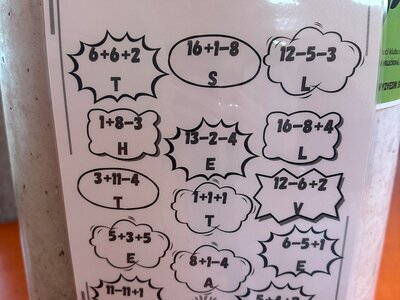 6+6+2
T
16+1-8
S
12-5-3
L
1+8-3
H
13-2-4
E
16-8+4
L
3+11-4
T
1+1+1
T
12-6+2
V
5+3+5
E
8+1-4
A
6-5+1
E
11-11+1